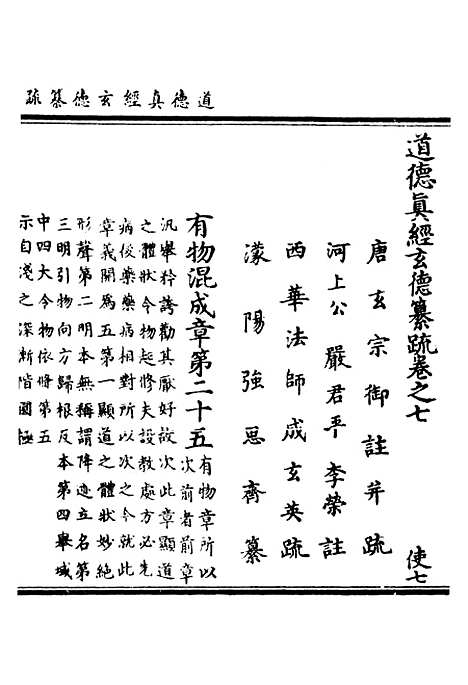 道德真經玄德纂疏
道德眞經玄德纂疏卷之七
使七
唐玄宗御註并疏
河上公嚴君平李榮註
西華法師成玄英疏
濛陽強思齊纂
有物混成章第二十五
有物章所以
次前者前章
汎舉矜誇勸其厭好故次此章顯道
之體狀令物起修夫設教處方必先
病後藥藥病相對所以次之今就此
章義開爲五第一顯道之體狀妙絕
形聲第二明本無稱謂降迹立名第
三明引物向方歸根反本第四舉域
中四大令物依脩第五
示自淺之深漸階圓極